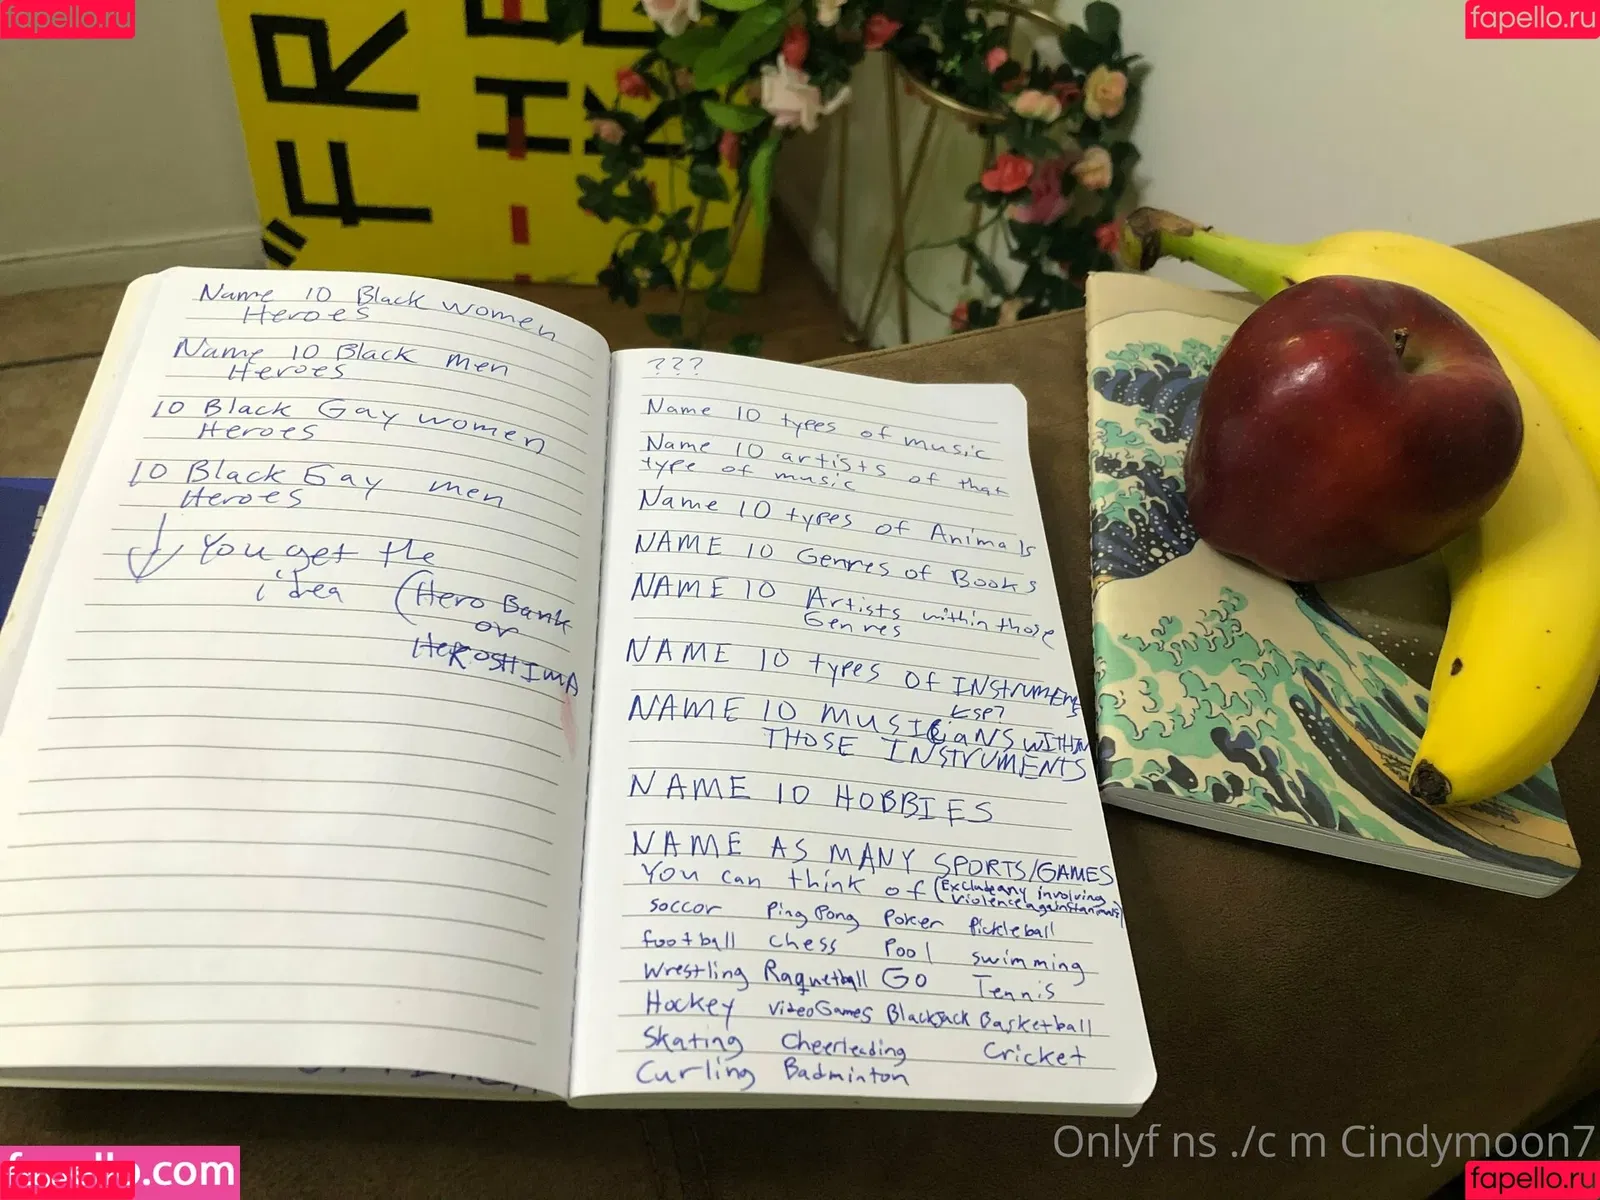 fapello.ru
fapello.ru
"FR
HE
Name 10 Black women
Heroes
Name 10 Black men
Heroes
10 Black Gay women
Heroes
10 Black Gay men
Heroes
You get the
idea (Hero Bank
or
HEROSHIMA
???
Name 10 types of music
Name 10 artists of that
type of music
Name 10 types of Animals
NAME 10 Genres of Books
NAME 10 Artists within those
Genres
NAME 10 types of INSTRUMENTS
NAME 10 MUSICIANS WITHIN
THOSE INSTRUMENTS
NAME 10 HOBBIES
NAME AS MANY SPORTS/GAMES
You can think of (Exclude any involving
violence against animals)
soccor Ping Pong Poker Pickleball
football chess Pool swimming
Wrestling Raquetball GO Tennis
Hockey videoGames Blackjack Basketball
Skating Cheerleading Cricket
Curling Badminton
Onlyf ns ./c m Cindymoon7
.com
fapello.ru
fapello.ru